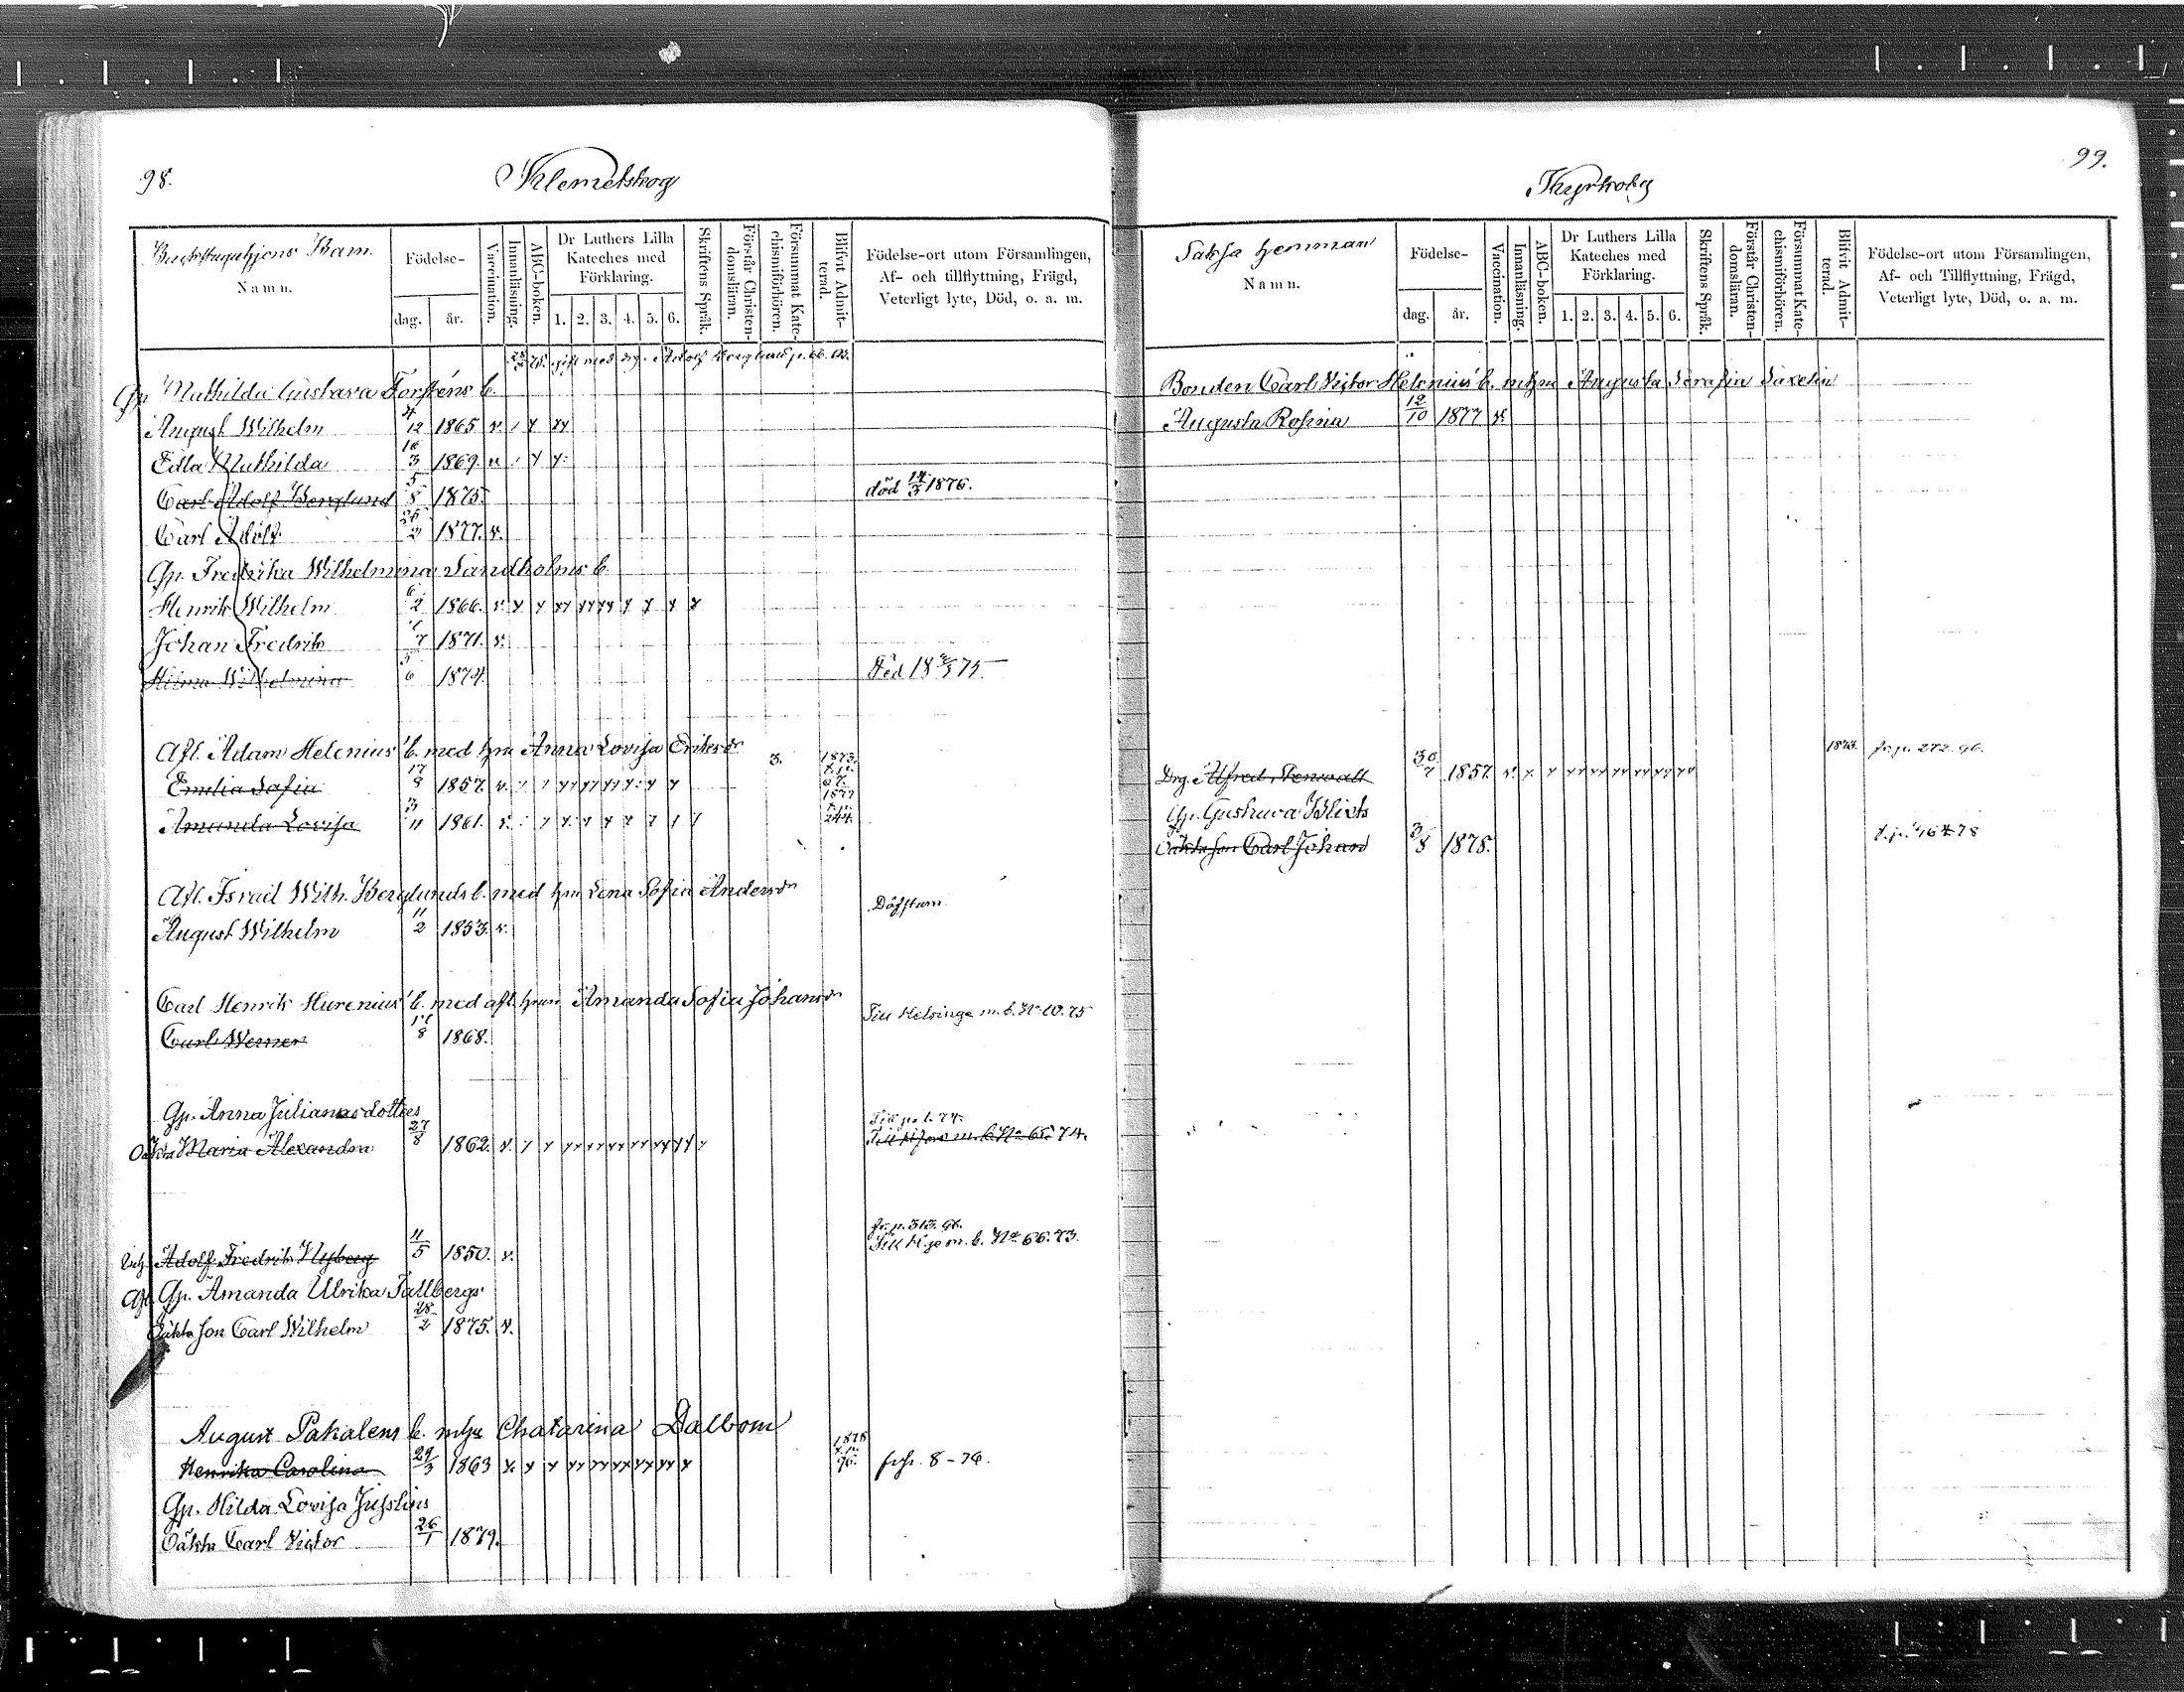 98.
Klemetskog
Namn.
Födelse-
dag.
år.
Vaccination.
Innanläsning.
ABC-boken.
Dr Luthers Lilla Kateches med Förklaring.
1. 2. 3. 4. 5. 6.
Skriftens Språk.
Förstår Christen-domsläran.
Försummat Kate-chismiförhören.
Blifvit Admit-terad.
Födelse-ort utom Församlingen,
Af- och tillflyttning, Frägd,
Veterligt lyte, Död, o. a. m.
gift med drg. Adolf Berglund p. 66.
Gp. Mathilda Gustava Forsténs b.
August Wilhelm 4/12 1865. v.
Edla Mathilda 16/3 1869. v.
Carl Adolf Berglund 5/8 1875. död 14/3 1876.
Carl Adolf 26/2 1877. v.
Gp. Fredrika Wilhelmina Sandholms b.
Henrik Wilhelm 6/2 1866. v.
Johan Fredrik 1/7 1871. v.
Hilma Wilhelmina 5/6 1874.
Afl. Adam Helenius' b. med hu Anna Lovisa Eriksdr
Emilia Sofia 17/8 1857. v. 3. 1873.
Amanda Lovisa 3/11 1861. v. 1877 244.
Afl. Israel Wilh. Berglunds b. med hu Lena Sofia Andersdr
August Wilhelm 11/2 1853. v. Döfstum
Carl Henrik Hurenius' b. med afl. hu Amanda Sofia Johansdr
Carl Werner 8 1868. Till Helsinge m. b. No 10. 75
Gp. Anna Julianasdotters
Oäkta Maria Alexandra 27/8 1862. v.
Adolf Fredrik Nyberg 11/5 1850. v. fr. p. 313. 96.
m. b. No 66. 73.
Afl. Gp. Amanda Ulrika Tallbergs
Oäkta son Carl Wilhelm 28/2 1875. v.
August Pakalens b. m hu Chatarina Dalbom
Henrika Carolina 29/3 1863 v. 1878 76.
Gp. Hilda Lovisa Juslins
Oäkta Carl Victor 26/1 1879.
99.
Kyrkoby
Saksa hemman
Namn.
Födelse-
dag.
år.
Vaccination.
Innanläsning.
ABC-boken.
Dr Luthers Lilla Kateches med Förklaring.
1. 2. 3. 4. 5. 6.
Skriftens Språk.
Förstår Christen-domsläran.
Försummat Kate-chismiförhören.
Blifvit Admit-terad.
Födelse-ort utom Församlingen,
Af- och Tillflyttning, Frägd,
Veterligt lyte, Död, o. a. m.
Bonden Carl Victor Helenius' b. m hu Augusta Serafia Saxelin
Augusta Rosina 12/10 1877 v.
Drg. Alfred Tenwall 30/7 1857. v. 1873. fr. p. 272. 96.
Gp. Gustava Blixts
Oäkta son Carl Johan 3/8 1878.